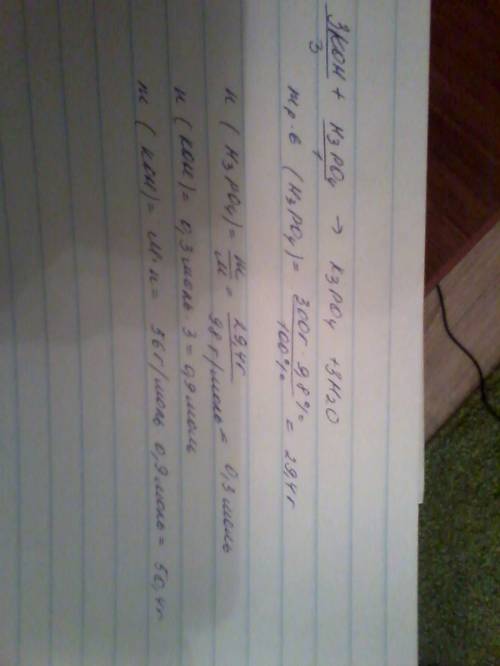 3KOH + H3PO4 → K3PO4 + 3H2O
3 1
mр-в (H3PO4) = 300г · 9,8% / 100% = 29,4г
n (H3PO4) = m / M = 29,4г / 98г/моль = 0,3 моль
n (KOH) = 0,3 моль 3 = 0,9 моль
m (KOH) = M·n = 56г/моль 0,9 моль = 50,4г